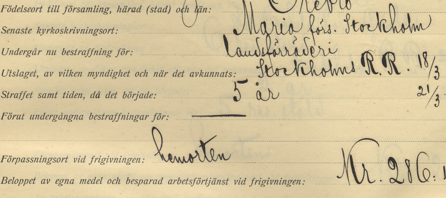 Födelseort till församling, härad (stad) och län: Örebro
Senaste kyrkoskrivningsort: Maria förs. Stockholm
Undergår nu bestraffning för: landsförräderi
Utslaget, av vilken myndighet och när det avkunnats: Stockholms R. R. 18/3
Straffet samt tiden, då det började: 5 år 21/3
Förut undergångna bestraffningar för:
Förpassningsort vid frigivningen: hemorten
Beloppet av egna medel och besparad arbetsförtjänst vid frigivningen: Kr. 286: